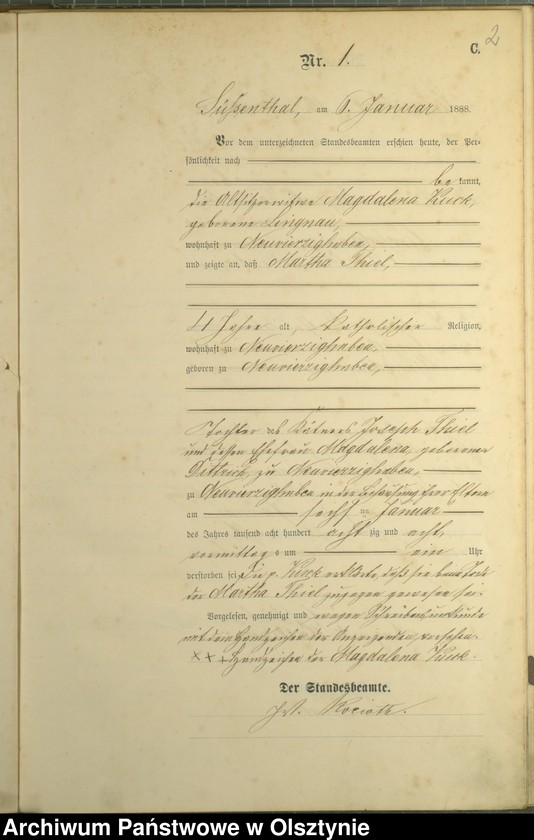 2
C.
Nr. 1.
Süssenthal, am 6. Januar 1888.
Vor dem unterzeichneten Standesbeamten erschien heute, der Per-
sönlichkeit nach
bekannt,
die Altsitzerwittwe Magdalena Kuck,
geborene Lingnau,
wohnhaft zu Neuvierzighuben,
und zeigte an, daß Martha Thiel,
Jahre alt, katholischer Religion,
wohnhaft zu Neuvierzighuben,
geboren zu Neuvierzighuben,
Tochter des Käthners Joseph Thiel
und dessen Ehefrau Magdalena, geborenen
Dittrich, zu Neuvierzighuben,
zu Neuvierzighuben in der Behausung ihrer Eltern
am sechsten Januar
des Jahres tausend acht hundert achtzig und acht,
vormittags um ein Uhr
verstorben sei. Die p. Kuck erklärte, daß sie beim Tode
der Martha Thiel zugegen gewesen sei.
Vorgelesen, genehmigt und wegen Schreibensunkunde
mit dem Handzeichen der Anzeigenden versehen.
+++ Handzeichen der Magdalena Kuck.
Der Standesbeamte.
Archiwum Państwowe w Olsztynie